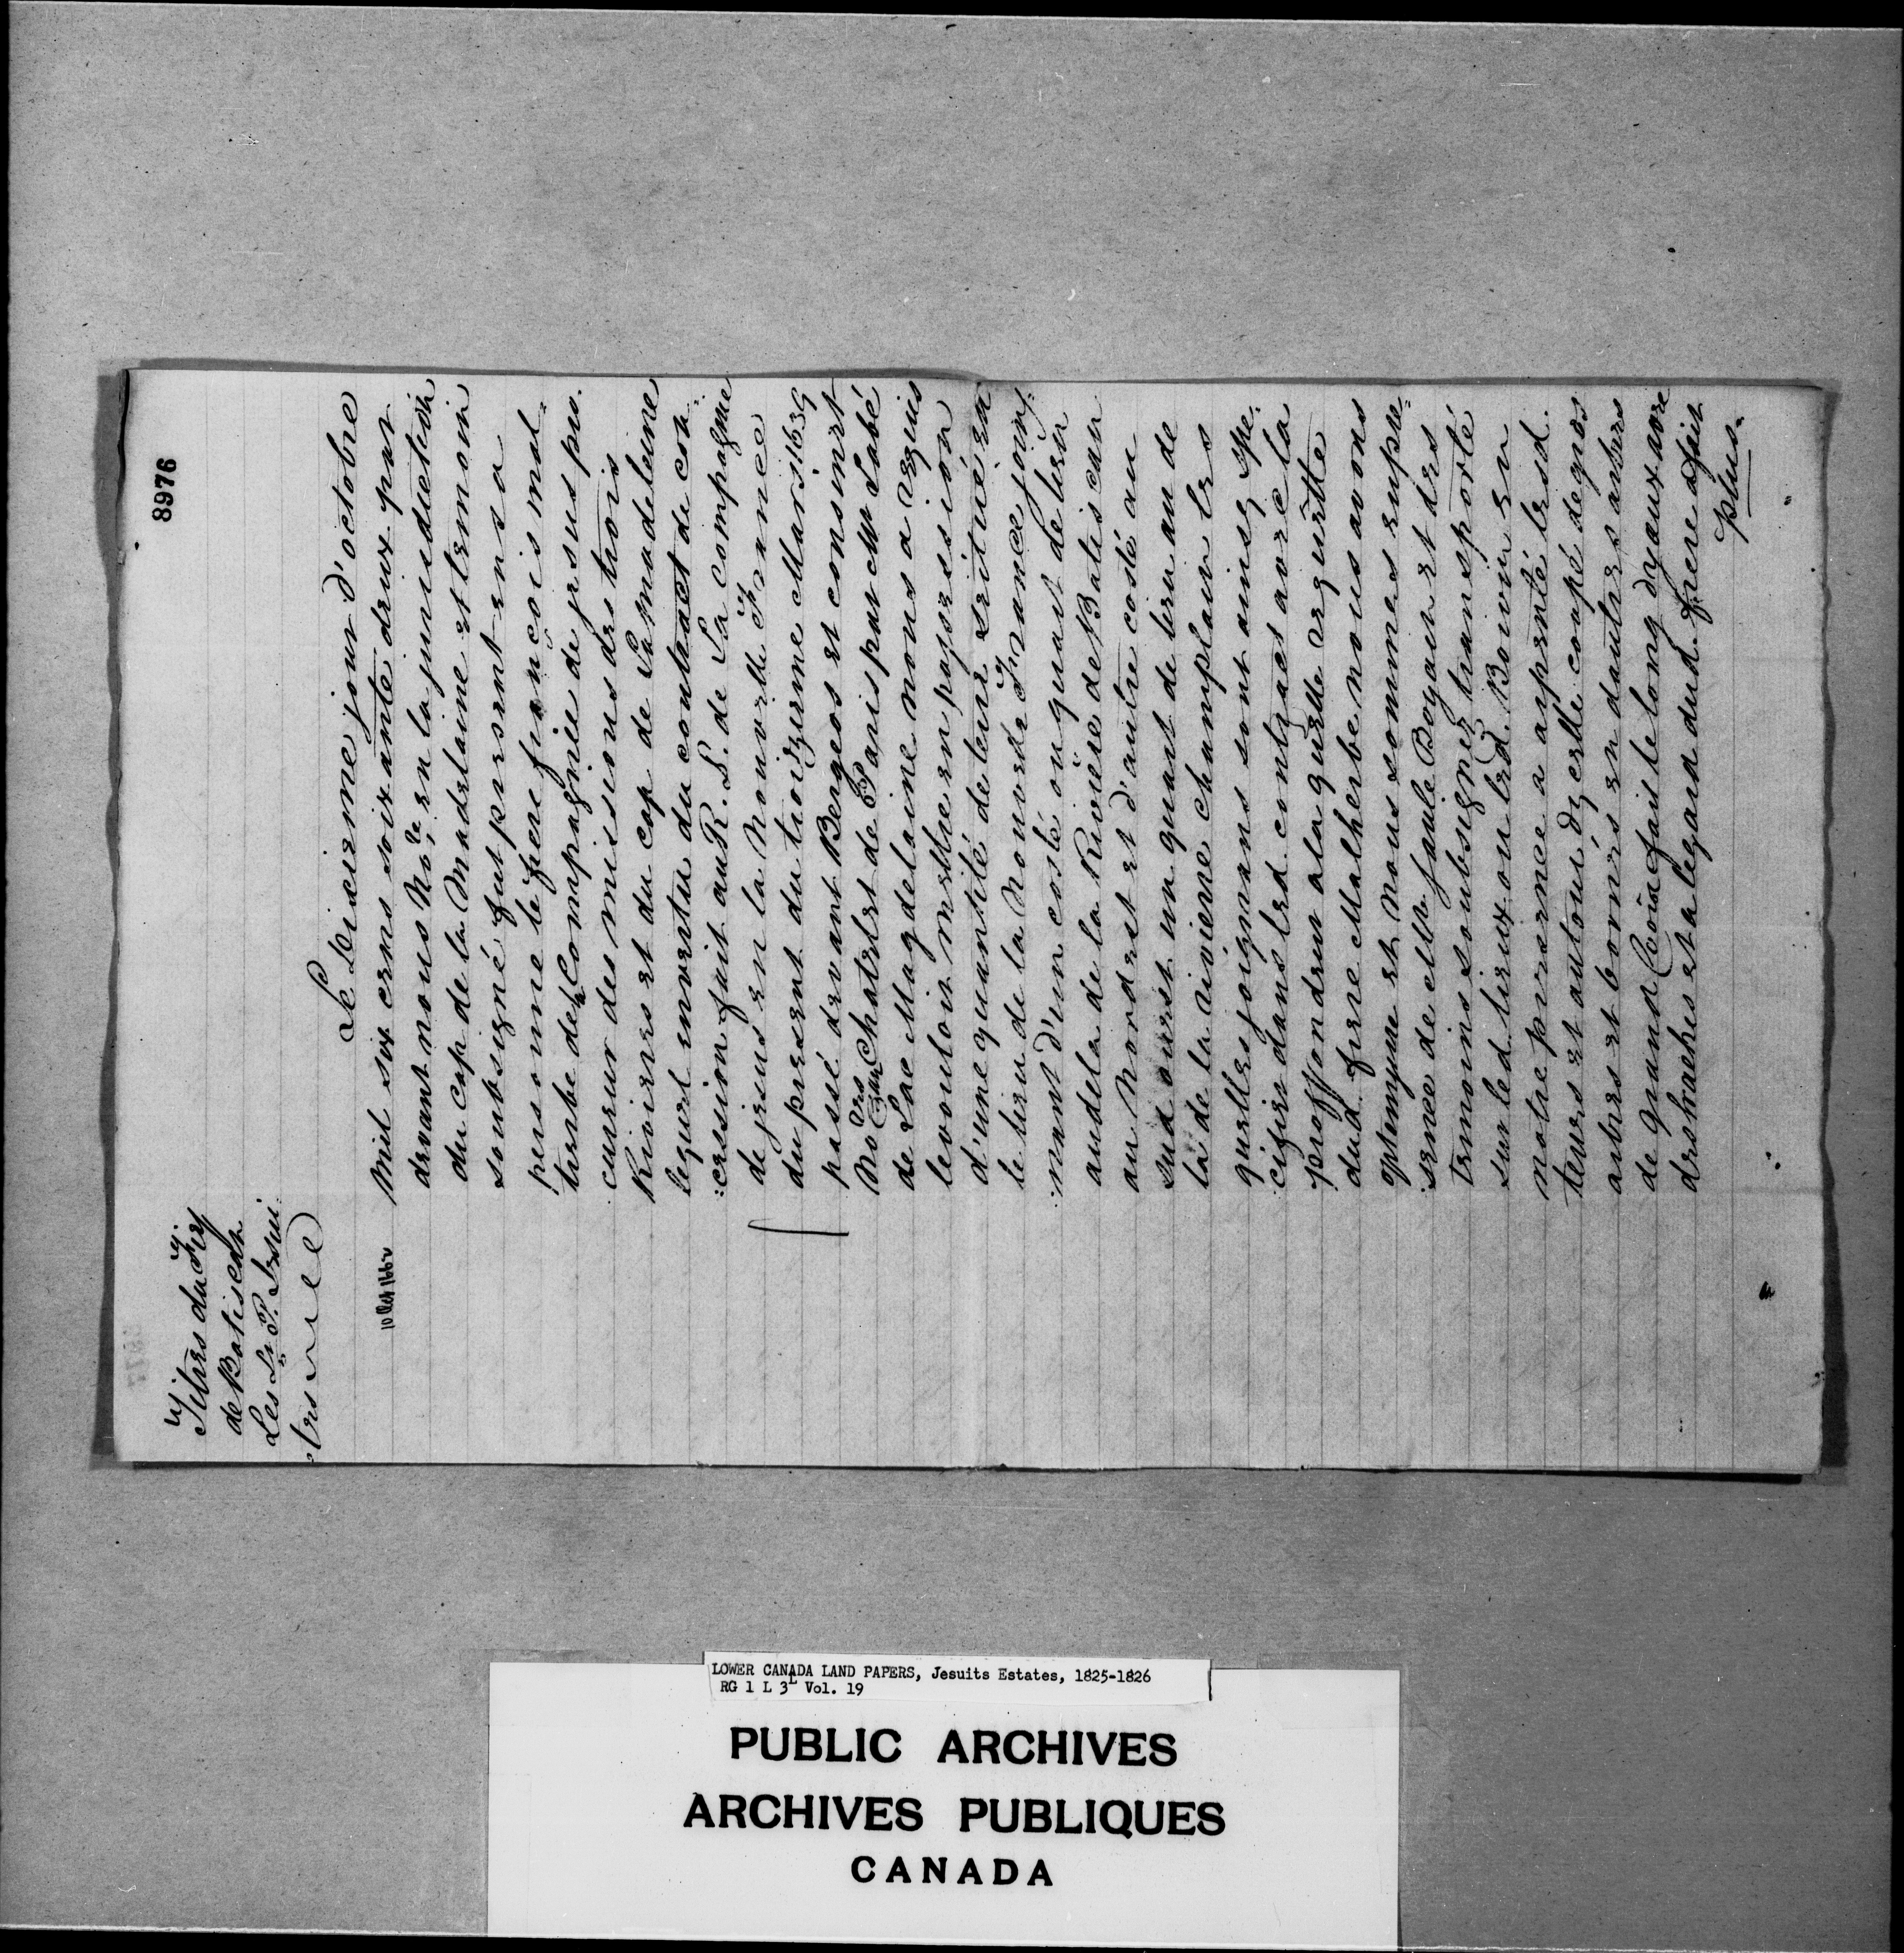 8976
Titres du Fief
de Batiscan
Les R. P. Jesui
:tes
Le dixieme jour d'octobre
10 Oct 1662
mil six cens soixante deux par
devant nous No.re en la jurisdiction
du cap de la Madelaine et temoin
soubsigné fut present en sa
personne le frere francois mal:
herbe de la Compagnie de jesus pro.
cureur des missions des trois
Rivieres et du cap de La madeleine
lequel en vertu du contract de con:
:cession fait au R. P. de La compagnie
de jesus en la Nouvelle France
du present du troizieme Mars 1639
passé devant Bergeos et consinet
No.res au Chatelet de Paris par Mr Labé
de Lae Magdelaine nous a requis
le vouloir mettre en possession
d'une quantité de terre scitué en
le lieu de la Nouvelle France joing:
:nant d'un costé ou quart de lieu
audela de la Riviere de Batiscan
au Nordest et d'autre costé au
sud ouest un quart de lieu au de
la de la riviere champlain les
quelles joignans sont ainsy spe:
:cifiés dans led contract avec la
proffondeur a laquelle requette
dud. frere Malherbe nous avons
optempere et nous sommes en pre:
:sence de Mtr Jaule Boyain et des
temoins soubsignez transporté
sur led. lieux ou led. Boivin en
notre presence a arpenté lesd.
terres et autour d'icelle coupé de gros
arbres et bornés en dautres arbres
de grand Coõix fait le long dyceux avec
des haches et a legard dud. frere a fait
plus.
LOWER CANADA LAND PAPERS, Jesuits Estates, 1825-1826
RG 1 L 3L Vol. 19
PUBLIC ARCHIVES
ARCHIVES PUBLIQUES
CANADA